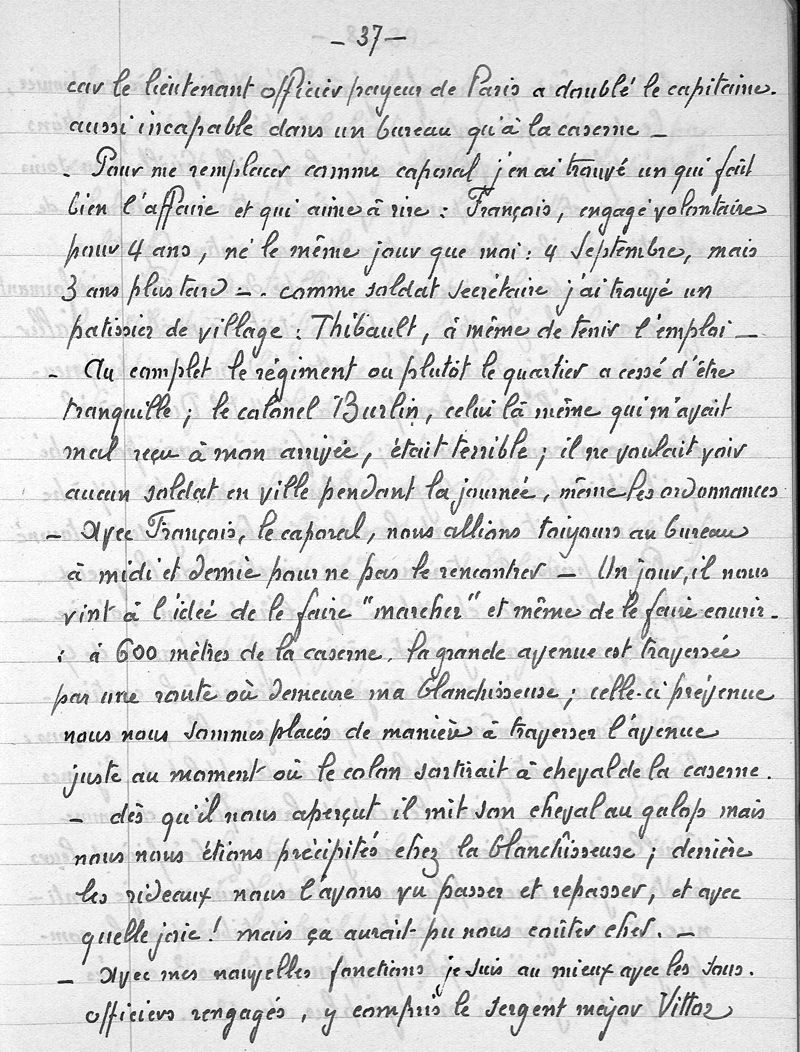 - 37 -
car le lieutenant officier payeur de Paris a doublé le capitaine.
aussi incapable dans un bureau qu'à la caserne -
- Pour me remplacer comme caporal j'en ai trouvé un qui fait
bien l'affaire et qui aime à rire : François, engagé volontaire
pour 4 ans, né le même jour que moi : 4 Septembre, mais
3 ans plus tard -. comme soldat secrétaire j'ai trouvé un
patissier de village : Thibault, à même de tenir l'emploi -
- Au complet le régiment ou plutôt le quartier a cessé d'être
tranquille ; le colonel Burlin, celui là même qui m'avait
mal reçu à mon arrivée, était terrible ; il ne voulait voir
aucun soldat en ville pendant la journée, même les ordonnances
- Avec François, le caporal, nous allions toujours au bureau
à midi et demie pour ne pas le rencontrer - Un jour, il nous
vint à l'idée de le faire "marcher" et même de le faire courir.
: à 600 mètres de la caserne, la grande avenue est traversée
par une route où demeure ma blanchisseuse ; celle-ci prévenue
nous nous sommes placés de manière à traverser l'avenue
juste au moment où le colon sortirait à cheval de la caserne.
- dès qu'il nous aperçut il mit son cheval au galop mais
nous nous étions précipités chez la blanchisseuse ; derrière
les rideaux nous l'avons vu passer et repasser, et avec
quelle joie ! mais ça aurait pu nous coûter cher. -
- Avec mes nouvelles fonctions je suis au mieux avec les sous.
officiers rengagés, y compris le sergent major Vittoz